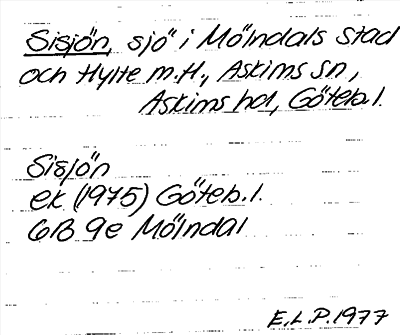 Sisjön, sjö i Mölndals stad
och Hylte m.fl., Askims sn,
Askims hd, Göteb.l.
Sisjön
ek (1975) Göteb.l.
6B 9e Mölndal
E.L.P.1977